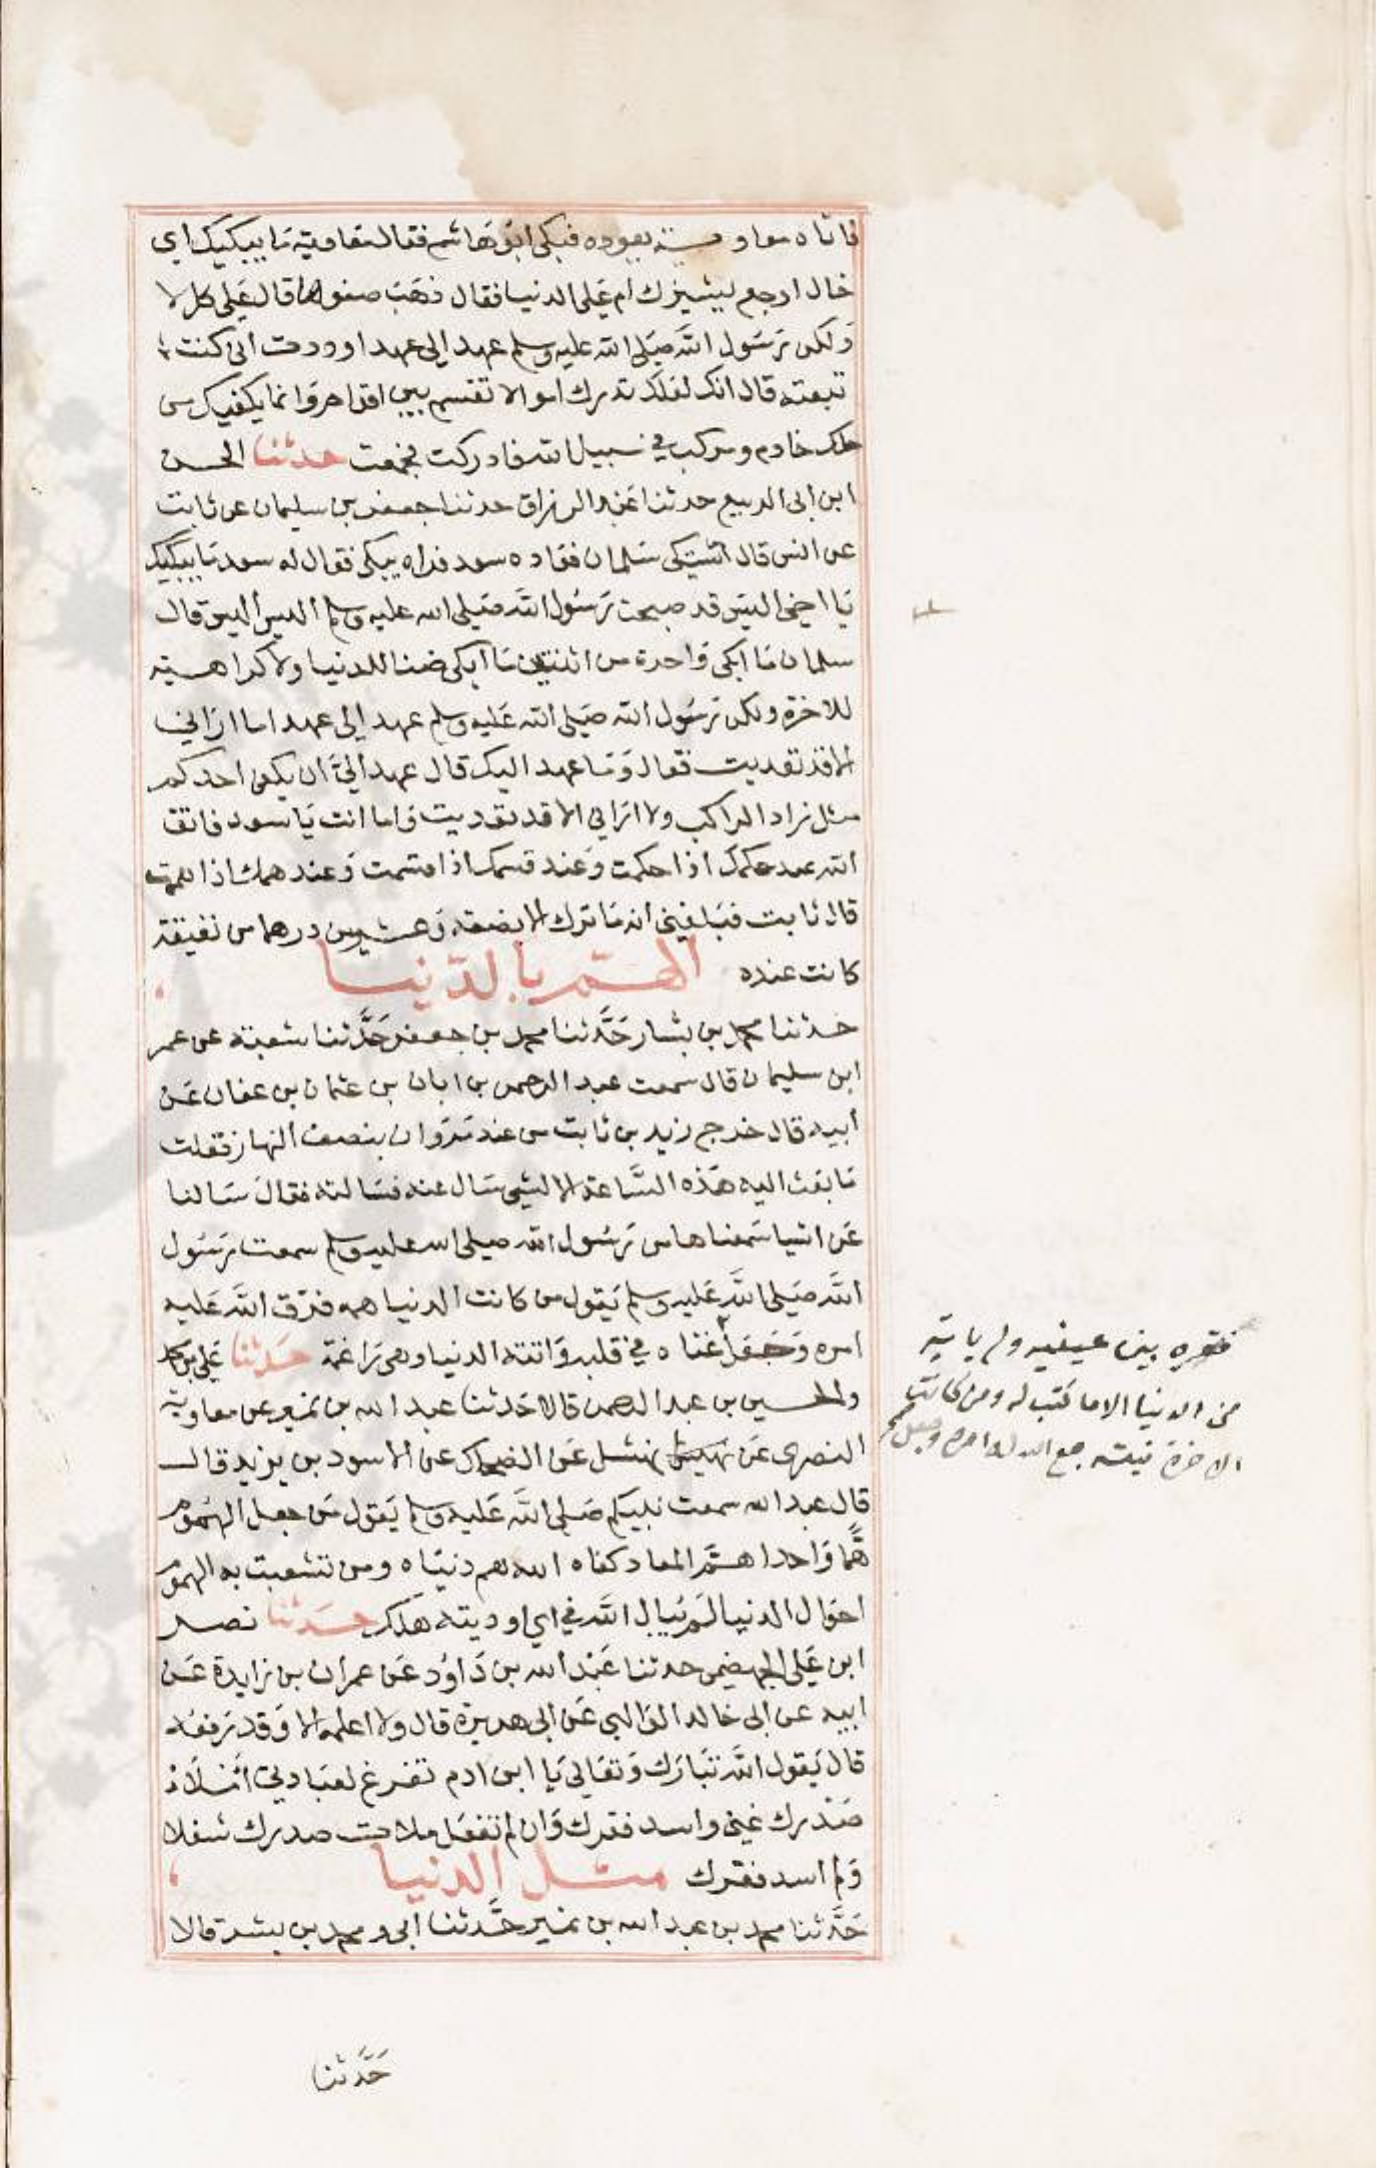 فاتاه معاوية يعوده فبكى ابو هاشم فقال معاوية ما يبكيك اي
خال اوجع يشيزك ام على الدنيا فقال ذهب صفوها قال على كل لا
ولكن رسول الله صلى الله عليه وسلم عهد الي عهدا وودت اني كنت
تبعته قال انك لعلك تدرك اموالا تقسم بين اقوام وانما يكفيك من
ذلك خادم ومركب في سبيل الله فادركت فجمعت حدثنا الحسن
ابن ابي الربيع حدثنا عبد الرزاق حدثنا جعفر بن سليمان عن ثابت
عن انس قال اشتكى سلمان فعاده سعد فراه يبكي فقال له سعد ما يبكيك
يا اخي اليس قد صحبت رسول الله صلى الله عليه وسلم اليس اليس قال
سلمان ما ابكي واحدة من اثنتين ما ابكي ضنا للدنيا ولا كراهية
للاخرة ولكن رسول الله صلى الله عليه وسلم عهد الي عهدا اما اراني
الا قد تعديت فقال وما عهد اليك قال عهد الي ان يكفي احدكم
مثل زاد الراكب ولا اراني الا قد تعديت واما انت يا سعد فاتق
الله عند حكمك اذا حكمت وعند قسمك اذا قسمت وعند همك اذا هممت
قال ثابت فبلغني انه ما ترك الا بضعة وعشرين درهما من نفيقة
كانت عنده الهم بالدنيا
حدثنا محمد بن بشار حدثنا محمد بن جعفر حدثنا شعبة عن عمر
ابن سليمان قال سمعت عبد الرحمن بن ابان بن عثمان بن عفان عن
ابيه قال خرج زيد بن ثابت من عند مروان بنصف النهار فقلت
ما بعث اليه هذه الساعة الا لشي سال عنه فسالته فقال سالنا
عن اشيا سمعناها من رسول الله صلى الله عليه وسلم سمعت رسول
الله صلى الله عليه وسلم يقول من كانت الدنيا همه فرق الله عليه
امره وجعل غناه في قلبه واتته الدنيا وهي راغمة حدثنا علي بن محمد
والحسين بن عبد الرحمن قالا حدثنا عبد الله بن نمير عن معاوية
النصري عن نهشل عن الضحاك عن الاسود بن يزيد قال
قال عبد الله سمعت نبيكم صلى الله عليه وسلم يقول من جعل الهموم
هما واحدا هم المعاد كفاه الله هم دنياه ومن تشعبت به الهموم
احوال الدنيا لم يبال الله في اي اوديته هلك حدثنا نصر
ابن علي الجهضمي حدثنا عبد الله بن داود عن عمران بن زايدة عن
ابيه عن ابي خالد الوالبي عن ابي هريرة قال ولا اعلمه الا وقد رفعه
قال يقول الله تبارك وتعالى يا ابن ادم تفرغ لعبادتي املأ
صدرك غنى واسد فقرك وان لم تفعل ملات صدرك شغلا
ولم اسد فقرك مثل الدنيا
حدثنا محمد بن عبد الله بن نمير حدثنا ابي ومحمد بن بشر قالا
فقره بين عينيه ولم ياته
من الدنيا الا ما كتب له ومن كانت
الاخرة نيته جمع الله له امره وجعل
حدثنا